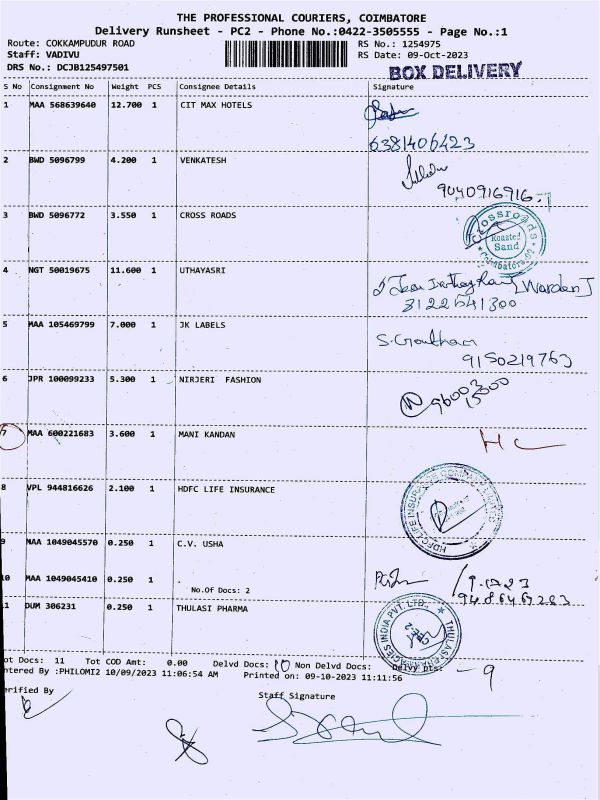 THE PROFESSIONAL COURIERS, COIMBATORE
Delivery Runsheet - PC2 - Phone No.:0422-3505555 - Page No.:1
Route: COKKAMPUDUR ROAD RS No.: 1254975
Staff: VADIVU RS Date: 09-Oct-2023
DRS No.: DCJB125497501
BOX DELIVERY
S No Consignment No Weight PCS Consignee Details Signature
1 MAA 568639640 12.700 1 CIT MAX HOTELS
6381406423
2 BWD 5096799 4.200 1 VENKATESH
9040916916
3 BWD 5096772 3.550 1 CROSS ROADS
Crossroads
Roasted
Sand
Coimbatore
4 NGT 50019675 11.600 1 UTHAYASRI
Warden
3122641300
5 MAA 105469799 7.000 1 JK LABELS
S. Goutham
9150219763
6 JPR 100099233 5.300 1 NIRJERI FASHION
7 MAA 600221683 3.600 1 MANI KANDAN
HC
8 VPL 944816626 2.100 1 HDFC LIFE INSURANCE
HDFC LIFE INSURANCE COMPANY LIMITED
9 MAA 1049045570 0.250 1 C.V. USHA
10 MAA 1049045410 0.250 1 .
No.Of Docs: 2
11 DUM 306231 0.250 1 THULASI PHARMA
THULASI PHARMACIES INDIA PVT. LTD.
CBE-2
ot Docs: 11 Tot COD Amt: 0.00 Delvd Docs: 10 Non Delvd Docs: Delvy pts: - 9
ntered By :PHILOMI2 10/09/2023 11:06:54 AM Printed on: 09-10-2023 11:11:56
erified By Staff Signature